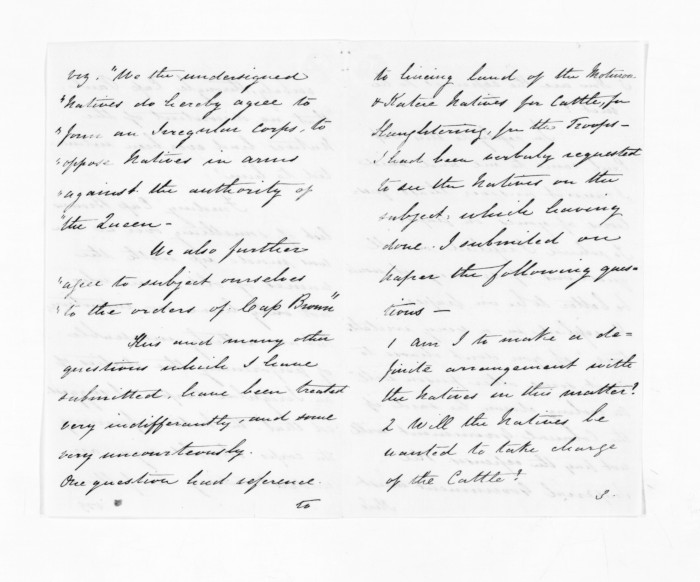 viz. "We the undersigned
"Natives do hereby agree to
"form an Irregular Corps, to
"oppose Natives in arms
"against the authority of
"the Queen -
We also further
"agee to subject ourselves
"to the orders of Cap Brown"
This and many other
questions which I have
submitted, have been treated
very indifferantly and some
very uncourteously.
One question had reference.
to
to hireing land of the
& Natives for Cattle, for
Slaughtering, for the Troops -
I had been verbaly requested
to see the Natives on the
subject, which having
done. I submited on
paper the following ques-
tions -
1 am I to make a de-
finite arrangement with
the Natives in this matter?
2 Will the Natives be
wanted to take charge
of the Cattle?
3.